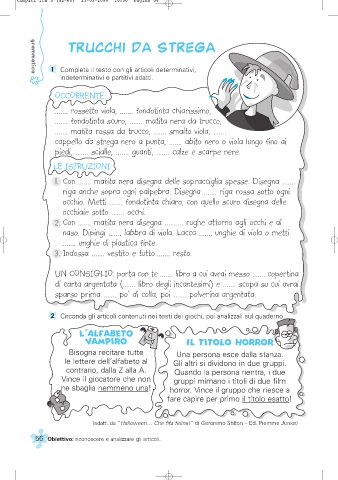 grammatica
TRUCCHI DA STREGA
1 Completa il testo con gli articoli determinativi,
indeterminativi e partitivi adatti.
OCCORRENTE:
....... rossetto viola, ....... fondotinta chiarissimo,
....... fondotinta scuro, ....... matita nera da trucco,
....... matita rossa da trucco, ....... smalto viola, .......
cappello da strega nero a punta, ....... abito nero o viola lungo fino ai
piedi, ....... scialle, ....... guanti, ....... calze e scarpe nere.
LE ISTRUZIONI
1. Con ....... matita nera disegna delle sopracciglia spesse. Disegna .......
riga anche sopra ogni palpebra. Disegna ....... riga rossa sotto ogni
occhio. Metti ....... fondotinta chiaro; con quello scuro disegna delle
occhiaie sotto ....... occhi.
2. Con ....... matita nera disegna ......... rughe attorno agli occhi e al
naso. Dipingi ....... labbra di viola. Lacca ....... unghie di viola o metti
....... unghie di plastica finte.
3. Indossa ....... vestito e tutto ....... resto.
UN CONSIGLIO: porta con te ....... libro a cui avrai messo ....... copertina
di carta argentata (....... libro degli incantesimi) e ....... scopa su cui avrai
sparso prima ....... po' di colla, poi ....... polverina argentata.
2 Circonda gli articoli contenuti nei testi dei giochi, poi analizzali sul quaderno.
L'ALFABETO
VAMPIRO
Bisogna recitare tutte
le lettere dell'alfabeto al
contrario, dalla Z alla A.
Vince il giocatore che non
ne sbaglia nemmeno una!
IL TITOLO HORROR
Una persona esce dalla stanza.
Gli altri si dividono in due gruppi.
Quando la persona rientra, i due
gruppi mimano i titoli di due film
horror. Vince il gruppo che riesce a
fare capire per primo il titolo esatto!
(adatt. da "Halloween... Che fifa felina!" di Geronimo Stilton – Ed. Piemme Junior)
56 Obiettivo: riconoscere e analizzare gli articoli.